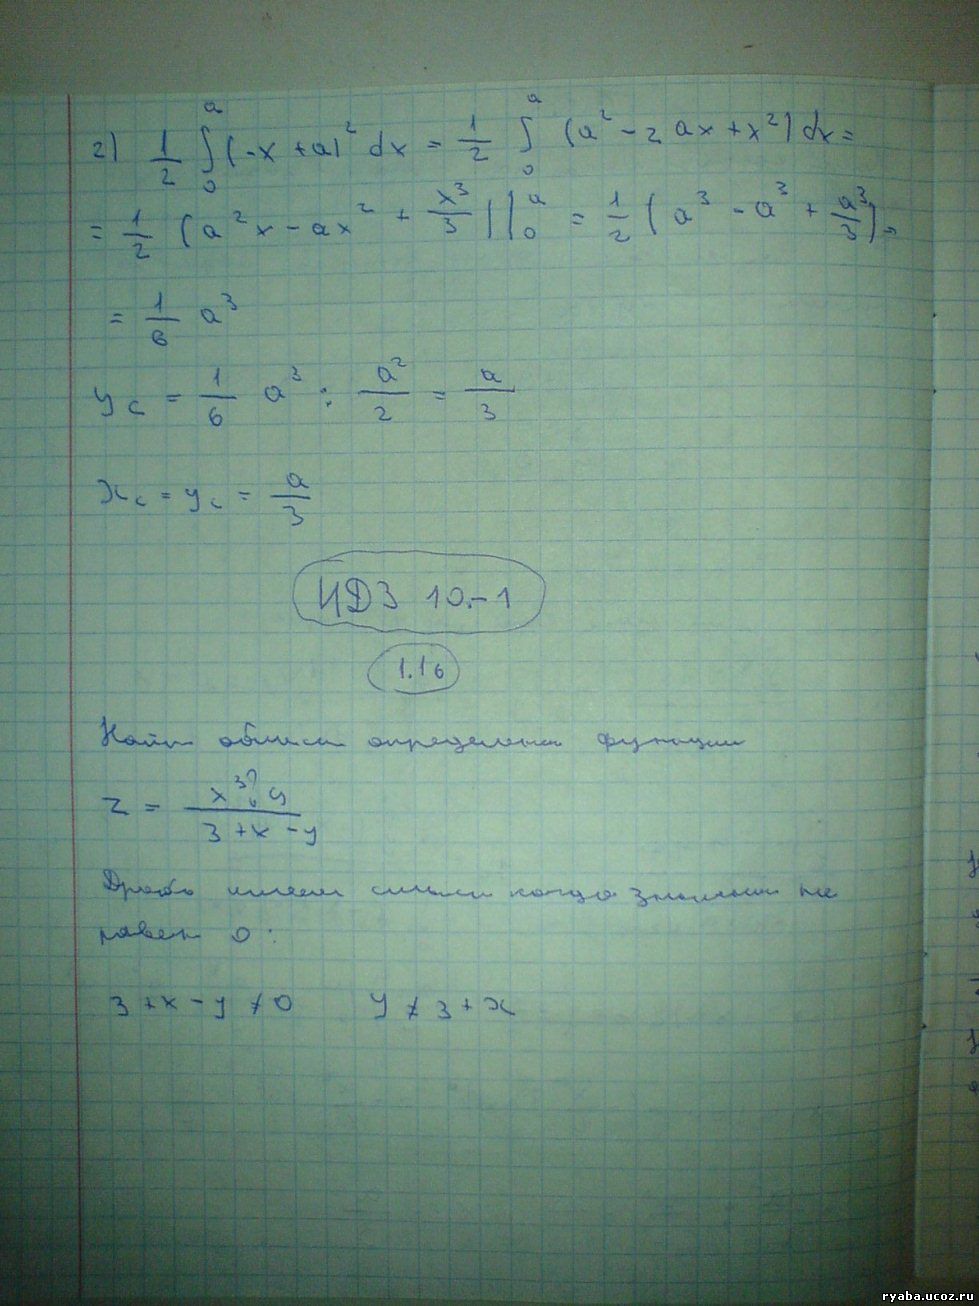 2) 1/2 ∫₀ᵃ (-x + a)² dx = 1/2 ∫₀ᵃ (a² - 2ax + x²) dx =
= 1/2 (a²x - ax² + x³/3) |₀ᵃ = 1/2 (a³ - a³ + a³/3) =
= 1/6 a³
y_c = 1/6 a³ : a²/2 = a/3
x_c = y_c = a/3
ИДЗ 10.-1
1.16
Найти области определения функции
z = x³ y / 3 + x - y
Дробь имеет смысл когда знаменат не
равен 0:
3 + x - y ≠ 0 y ≠ 3 + x
ryaba.ucoz.ru